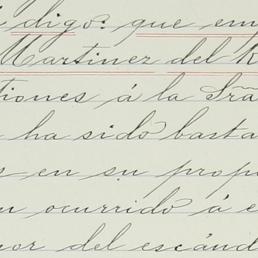 digo: que em
Martinez del R
tiones á la Sra
ha sido basta
s en su prop
n ocurrido á e
or del escánd